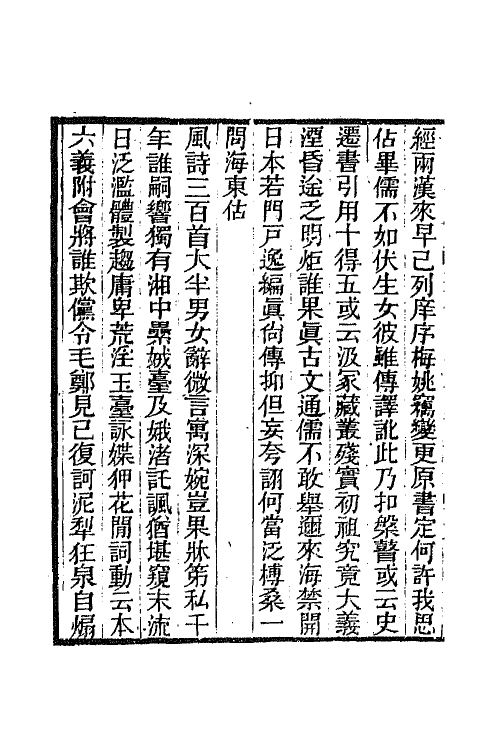 經兩漢來早已列庠序梅姚竊變更原書定何許我思
佔畢儒不如伏生女彼雖傳譯訛此乃扣槃瞽或云史
遷書引用十得五或云汲冢藏叢殘實初祖究竟大義
湮昏途乏明炬誰果眞古文通儒不敢舉邇來海禁開
日本若門戸逸編眞尙傳抑但妄夸詡何當泛榑桑一
問海東估
風詩三百首大半男女辭微言寓深婉豈果牀笫私千
年誰嗣響獨有湘中纍娀臺及娥渚託諷猶堪窺末流
日泛濫體製趨庸卑荒淫玉臺詠媟狎花閒詞動云本
六義附會將誰欺儻令毛鄭見已復訶泥犁狂泉自煽